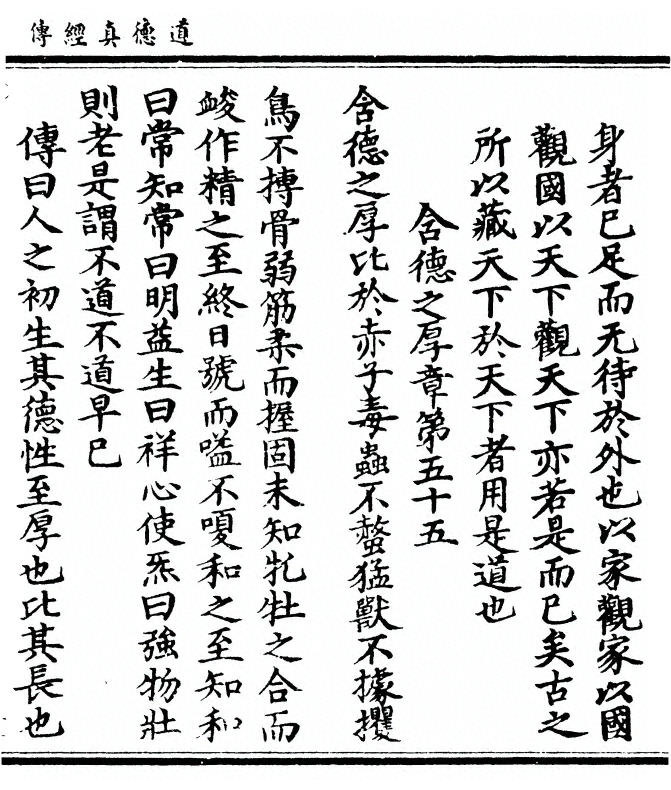 道德真經傳
身者已足而无待於外也以家觀家以國
觀國以天下觀天下亦若是而已矣古之
所以藏天下於天下者用是道也
含德之厚章第五十五
含德之厚比於赤子毒蟲不螫猛獸不據攫
鳥不搏骨弱筋柔而握固未知牝牡之合而
峻作精之至終日號而嗌不嗄和之至知和
曰常知常曰明益生曰祥心使炁曰強物壯
則老是謂不道不道早已
傳曰人之初生其德性至厚也比其長也